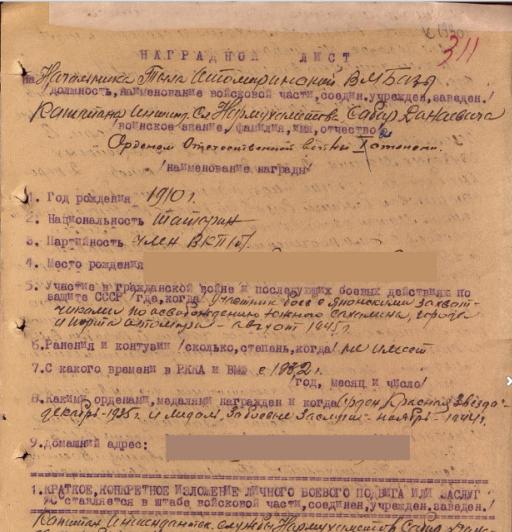 к 1940
311
НАГРАДНОЙ ЛИСТ
на Начальника Тыла Отомаринской ВМБазы
/должность, наименование войсковой части, соедин. учрежден, заведен./
Капитана Интенд. Сл.
воинское звание, фамилия, имя, отчество
Орденом Отечественной войны степени.
/наименование награды/
1. Год рождения 1910 г.
2. Национальность Татарин
3. Партийность член ВКП/б/
4. Место рождения
5. Участие в гражданской войне и последующих боевых действиях по
защите СССР /где, когда/ участник боев с японскими захват-
чиками по освобождению южного Сахалина, города
и порта Отомари - август 1945 г.
6. Ранения и контузии /сколько, степень, когда/ не имеет
7. С какого времени в РККА и ВМФ с 1932 г.
/год, месяц и число/
8. Какими орденами, медалями награжден и когда Орден Красная Звезда -
декабрь - 1935 г. и медаль За боевые Заслуги - ноябрь - 1944 г.
9. Домашний адрес:
1. КРАТКОЕ, КОНКРЕТНОЕ ИЗЛОЖЕНИЕ ЛИЧНОГО БОЕВОГО ПОДВИГА ИЛИ ЗАСЛУГ
/составляется в штабе войсковой части, соединен, учрежден, заведен./
Капитан Интендантск. службы